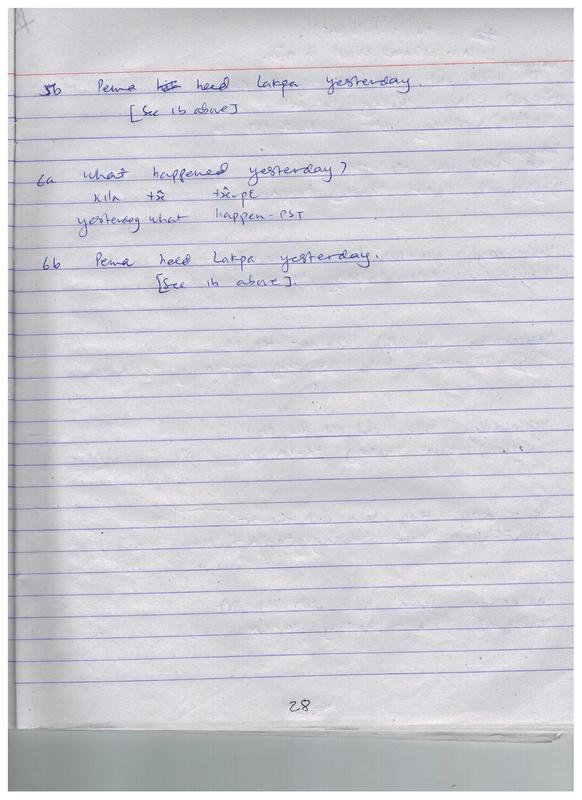 5b Pema heed Lakpa yesterday.
[See 1b above]
6a What happened yesterday?
tɕ̃ tɕ̃-pɛ
yesterday what happen-PST
6b Pema heed Lakpa yesterday.
[See 1b above].
28